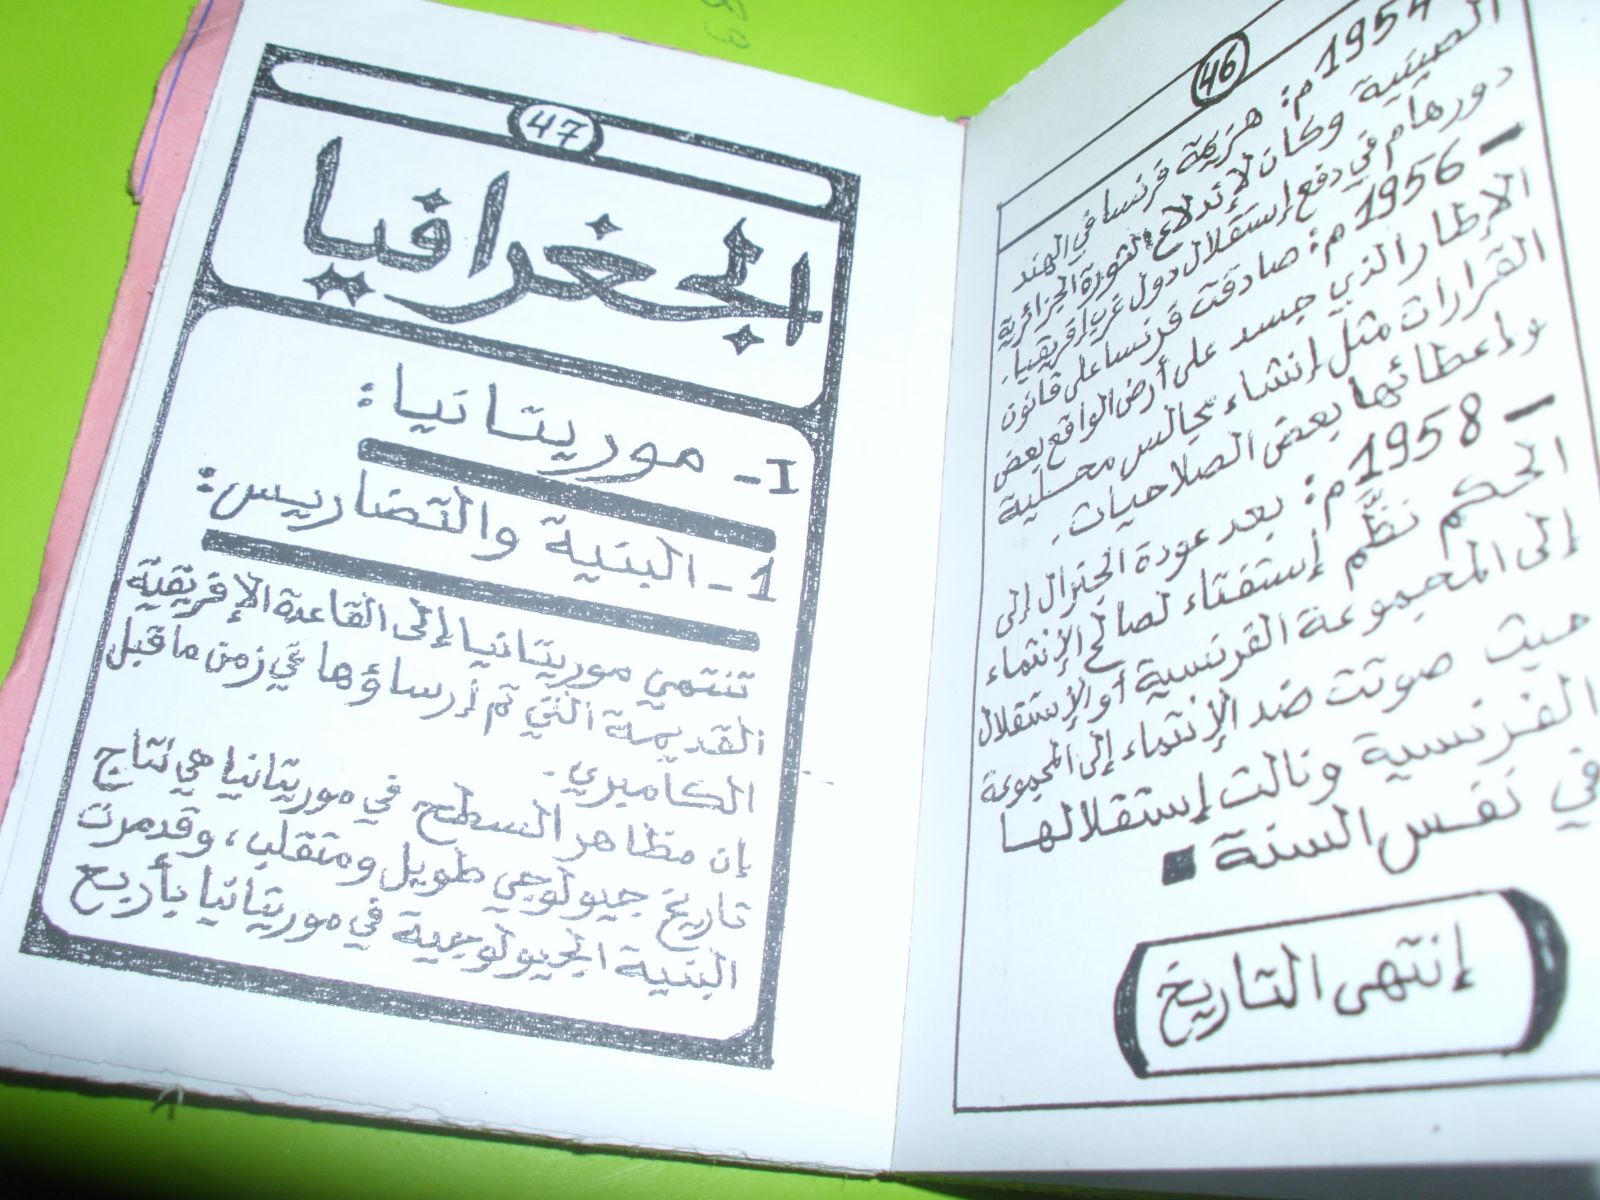 46
1954م: هزيمة فرنسا في الهند
الصينية وكان لإندلاع الثورة الجزائرية
دورهام في دفع إستقلال دول غرب إفريقيا.
— 1956م: صادقت فرنسا على قانون
الإطار الذي جسد على أرض الواقع بعض
القرارات مثل إنشاء مجالس محلية
وإعطائها بعض الصلاحيات.
— 1958م: بعد عودة الجنرال إلى
الحكم نظَّم إستفتاء لصالح الإنتماء
إلى المجموعة الفرنسية أو الإستقلال
حيث صوتت ضد الإنتماء إلى المجموعة
الفرنسية ونالت إستقلالها
في نفس السنة
إنتهى التاريخ
47
الجغرافيا
I- موريتانيا:
1- البنية والتضاريس:
تنتمي موريتانيا إلى القاعدة الإفريقية
القديمة التي تم إرساؤها في زمن ماقبل
الكامبري.
إن مظاهر السطح في موريتانيا هي نتاج
تاريخ جيولوجي طويل ومتقلب، وقدمرت
البنية الجيولوجية في موريتانيا بأربع